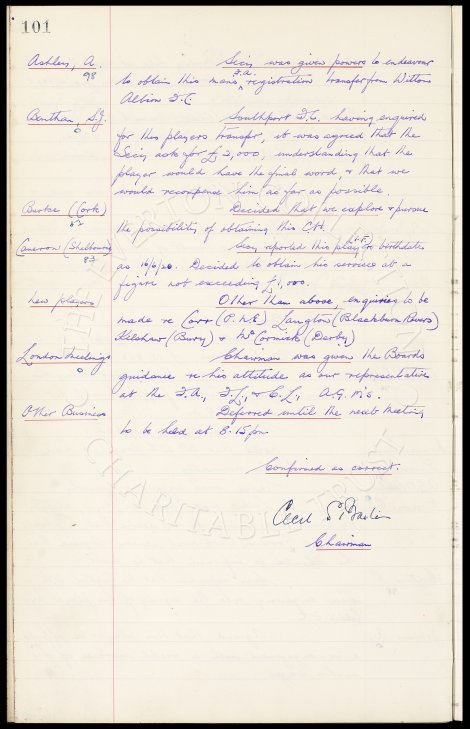 101
Ashley, A. Secy was given powers to endeavour
98
to obtain this mans F.A. registration transfer from Witton
Albion F.C.
Benthan, S.J. Southport F.C. having enquired
0
for this players transfer, it was agreed that the
Secy ask for £2,000, understanding that the
player would have the final word, & that we
would recompense him as far as possible.
Burke (Cork) Decided that we explore & pursue
82
the possibility of obtaining this C.H.
Cameron (Shelbourne) Secy reported this player I.F. birthdate
83
as 16/6/20. Decided to obtain his service at a
figure not exceeding £1,000.
New players Other than above, enquiries to be
made re Corr (P.N.E) Langton (Blackburn Rovers)
Kilshaw (Bury) & McCormick (Derby)
London Meetings Chairman was given the Boards
0
guidance re his attitude as our representative
at the F.A., F.L., & C.L, A.G. M's.
Other Business Deferred until the next meeting
to be held at 8.15 pm.
Confirmed as correct.
Cecil S.
Chairman
THE EVERTON
CHARITABLE TRUST